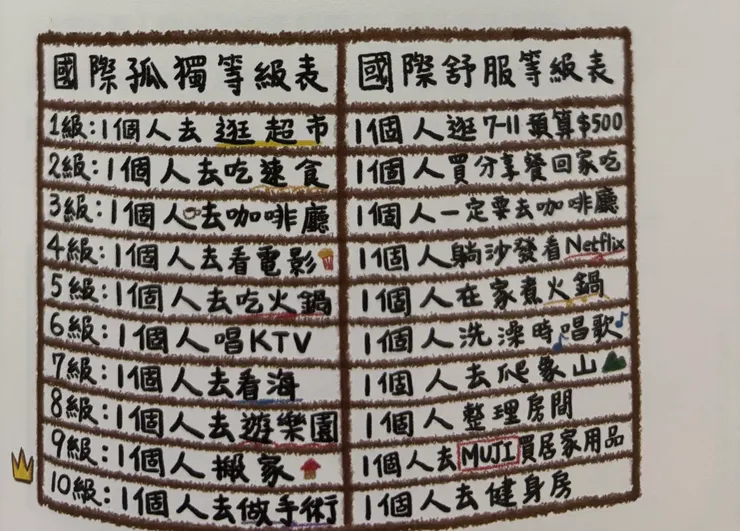 國際孤獨等級表 國際舒服等級表
1級:1個人去逛超市 1個人逛7-11預算$500
2級:1個人去吃速食 1個人買分享餐回家吃
3級:1個人去咖啡廳 1個人一定要去咖啡廳
4級:1個人去看電影 1個人躺沙發看Netflix
5級:1個人去吃火鍋 1個人在家煮火鍋
6級:1個人唱KTV 1個人洗澡時唱歌
7級:1個人去看海 1個人去爬象山
8級:1個人去遊樂園 1個人整理房間
9級:1個人搬家 1個人去MUJI買居家用品
10級:1個人去做手術 1個人去健身房